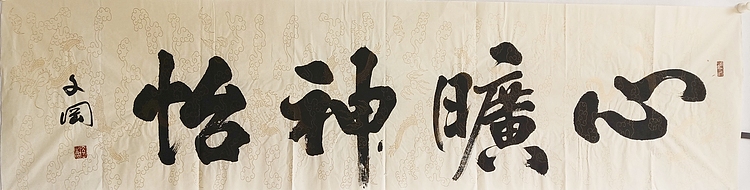 心曠神怡
文岡